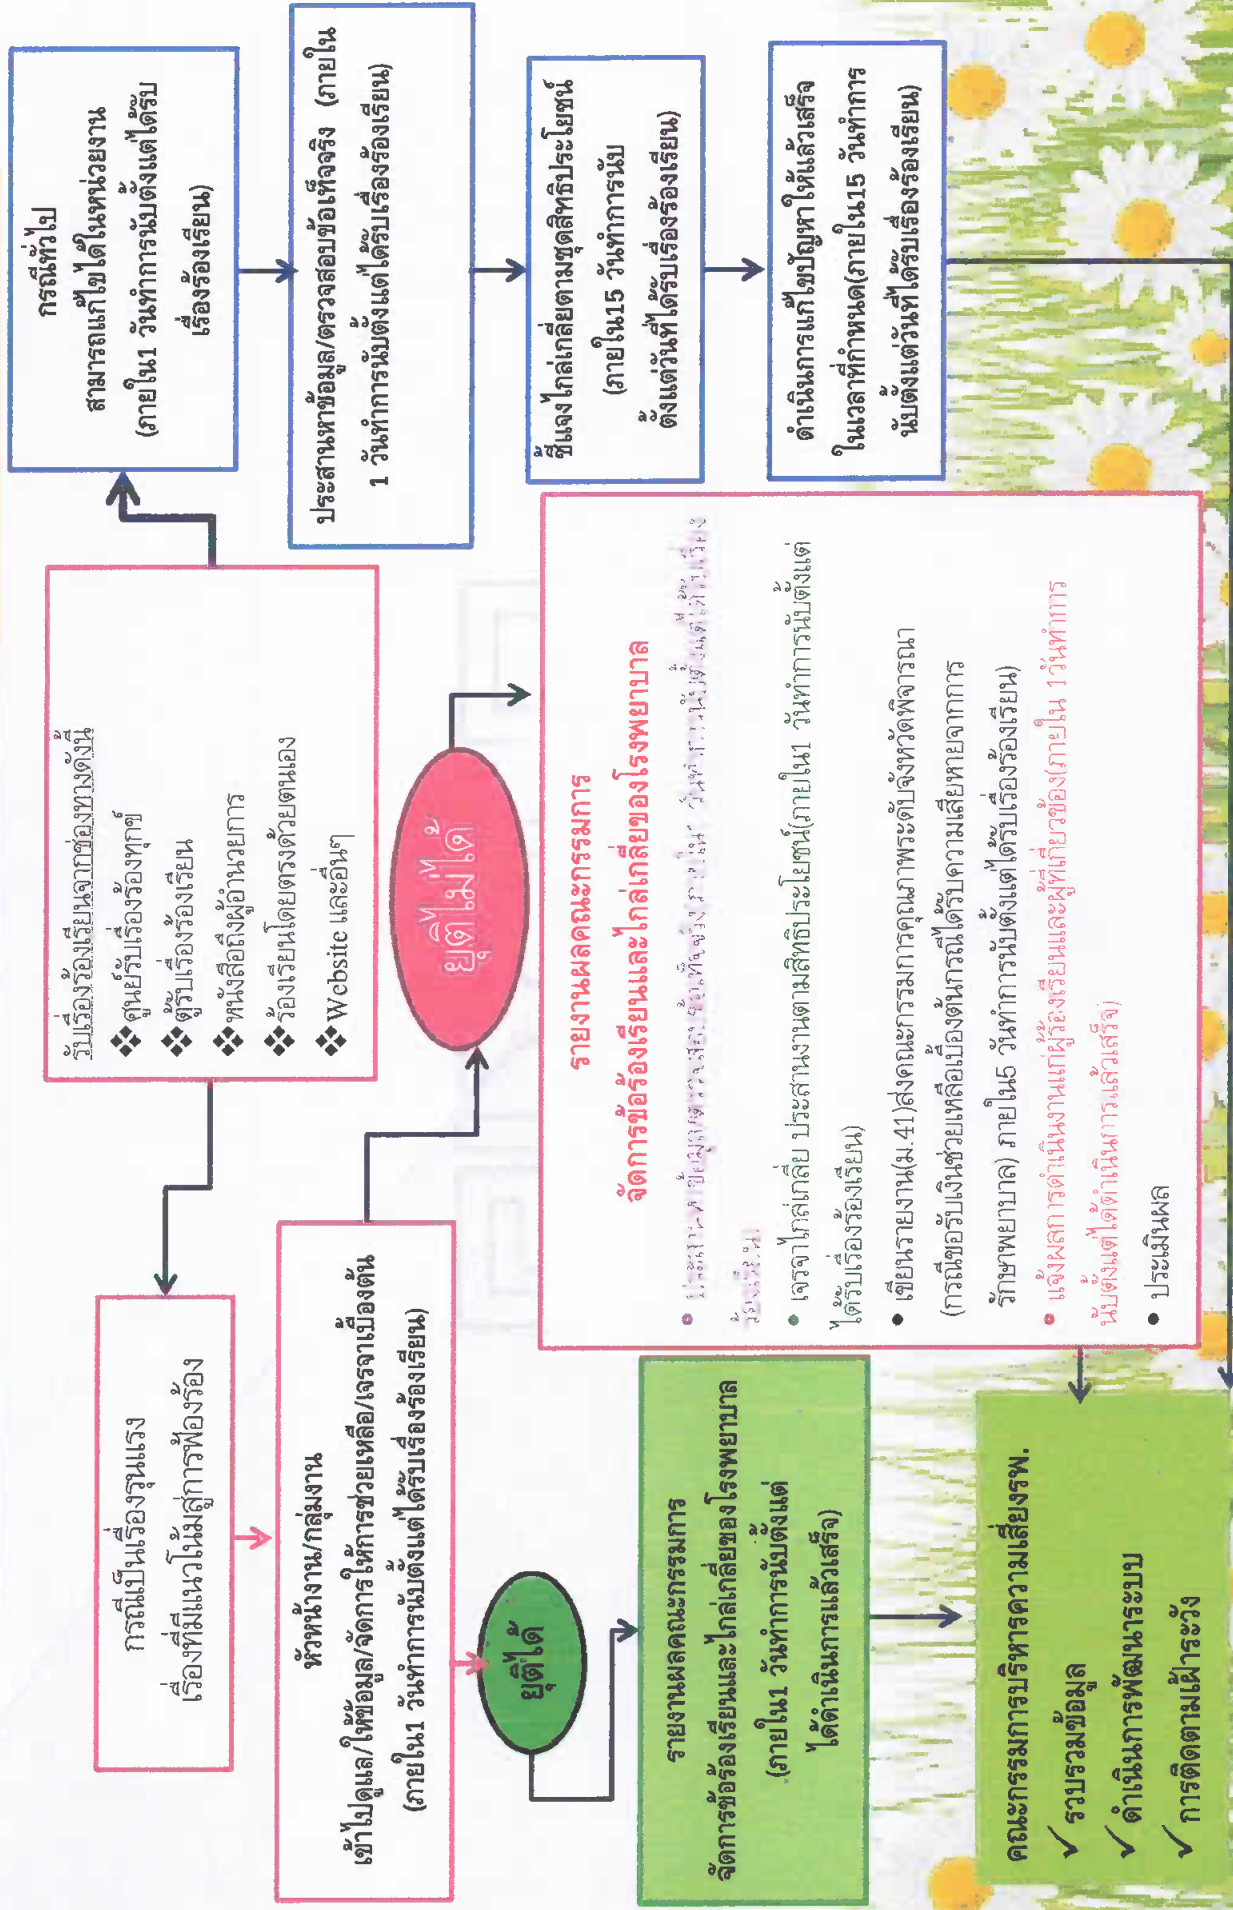 รับเรื่องร้องเรียนจากช่องทางดังนี้
❖ ศูนย์รับเรื่องร้องทุกข์
❖ ตู้รับเรื่องร้องเรียน
❖ หนังสือถึงผู้อำนวยการ
❖ ร้องเรียนโดยตรงด้วยตนเอง
❖ Website และอื่นๆ
กรณีทั่วไป
สามารถแก้ไขได้ในหน่วยงาน
(ภายใน1 วันทำการนับตั้งแต่ได้รับ
เรื่องร้องเรียน)
ประสานหาข้อมูล/ตรวจสอบข้อเท็จจริง (ภายใน
1 วันทำการนับตั้งแต่ได้รับเรื่องร้องเรียน)
ชี้แจงไกล่เกลี่ยตามชุดสิทธิประโยชน์
(ภายใน15 วันทำการนับ
ตั้งแต่วันที่ได้รับเรื่องร้องเรียน)
ดำเนินการแก้ไขปัญหาให้แล้วเสร็จ
ในเวลาที่กำหนด(ภายใน15 วันทำการ
นับตั้งแต่วันที่ได้รับเรื่องร้องเรียน)
กรณีเป็นเรื่องรุนแรง
เรื่องที่มีแนวโน้มสู่การฟ้องร้อง
หัวหน้างาน/กลุ่มงาน
เข้าไปดูแล/ให้ข้อมูล/จัดการให้การช่วยเหลือ/เจรจาเบื้องต้น
(ภายใน1 วันทำการนับตั้งแต่ได้รับเรื่องร้องเรียน)
ยุติไม่ได้
ยุติได้
รายงานผลคณะกรรมการ
จัดการข้อร้องเรียนและไกล่เกลี่ยของโรงพยาบาล
• ประสานหาข้อมูล/ตรวจสอบข้อเท็จจริง(ภายใน1 วันทำการนับตั้งแต่ได้รับเรื่อง
ร้องเรียน)
• เจรจาไกล่เกลี่ย ประสานงานตามสิทธิประโยชน์(ภายใน1 วันทำการนับตั้งแต่
ได้รับเรื่องร้องเรียน)
• เขียนรายงาน(ม.41)ส่งคณะกรรมการคุณภาพระดับจังหวัดพิจารณา
(กรณีขอรับเงินช่วยเหลือเบื้องต้นกรณีได้รับความเสียหายจากการ
รักษาพยาบาล) ภายใน5 วันทำการนับตั้งแต่ได้รับเรื่องร้องเรียน)
• แจ้งผลการดำเนินงานแก่ผู้ร้องเรียนและผู้ที่เกี่ยวข้อง(ภายใน 1วันทำการ
นับตั้งแต่ได้ดำเนินการแล้วเสร็จ)
• ประเมินผล
รายงานผลคณะกรรมการ
จัดการข้อร้องเรียนและไกล่เกลี่ยของโรงพยาบาล
(ภายใน1 วันทำการนับตั้งแต่
ได้ดำเนินการแล้วเสร็จ)
คณะกรรมการบริหารความเสี่ยงรพ.
✓ รวบรวมข้อมูล
✓ ดำเนินการพัฒนาระบบ
✓ การติดตามเฝ้าระวัง